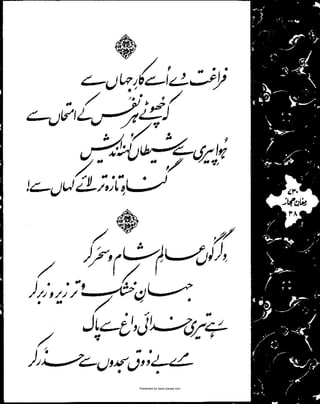 فراغت دے اُسے کارِ جہاں سے
کہ چھوٹے ہر نفَس کے امتحاں سے
ہُوا پیری سے شیطاں کُہنہ اندیش
گناہِ تازہ تر لائے کہاں سے!
دِگرگُوں عالمِ شام و سحَر کر
جہانِ خشک و تر زیر و زبر کر
رہے تیری خدائی داغ سے پاک
مرے بے ذوق سجدوں سے حذَر کر
۷۳۰
ارمغانِ حجاز
۳۸